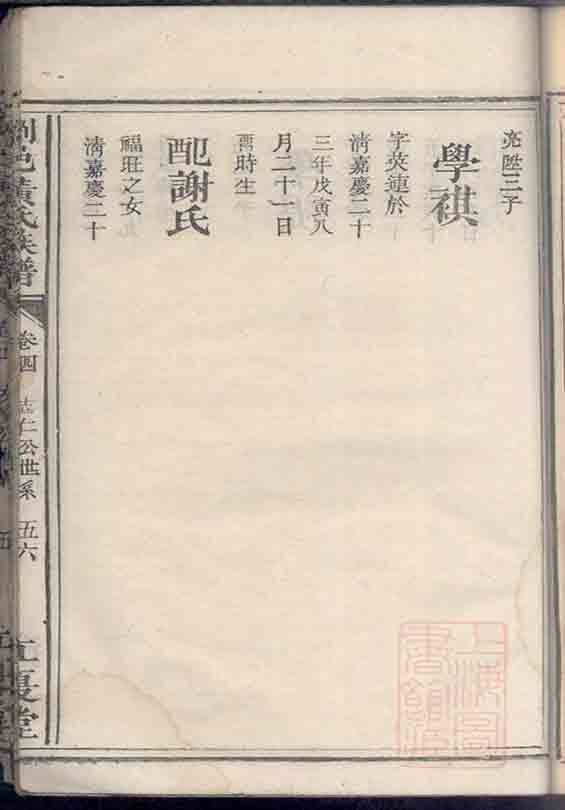 亮陞三子
學祺
字英連於
淸嘉慶二十
三年戊寅八
月二十一日
時生
配謝氏
福旺之女
淸嘉慶二十
邑黃氏族譜
卷四
志仁公世系
五六
江夏堂
上海圖書館藏